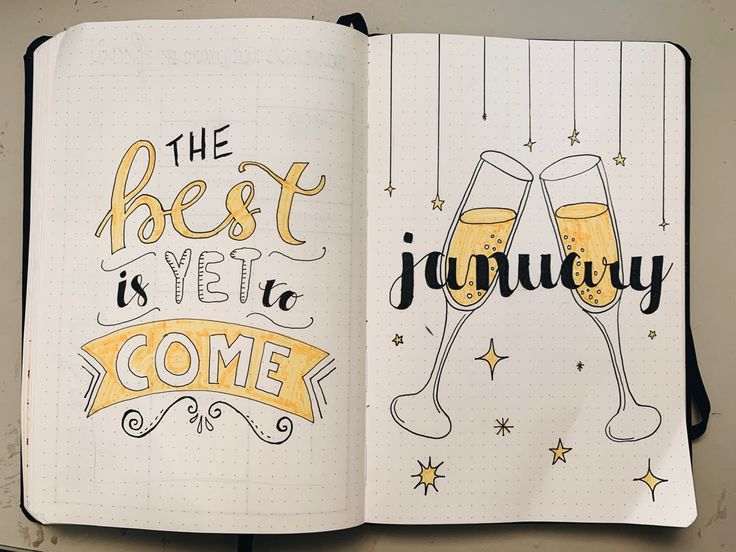 THE
best
is YET to
COME
january